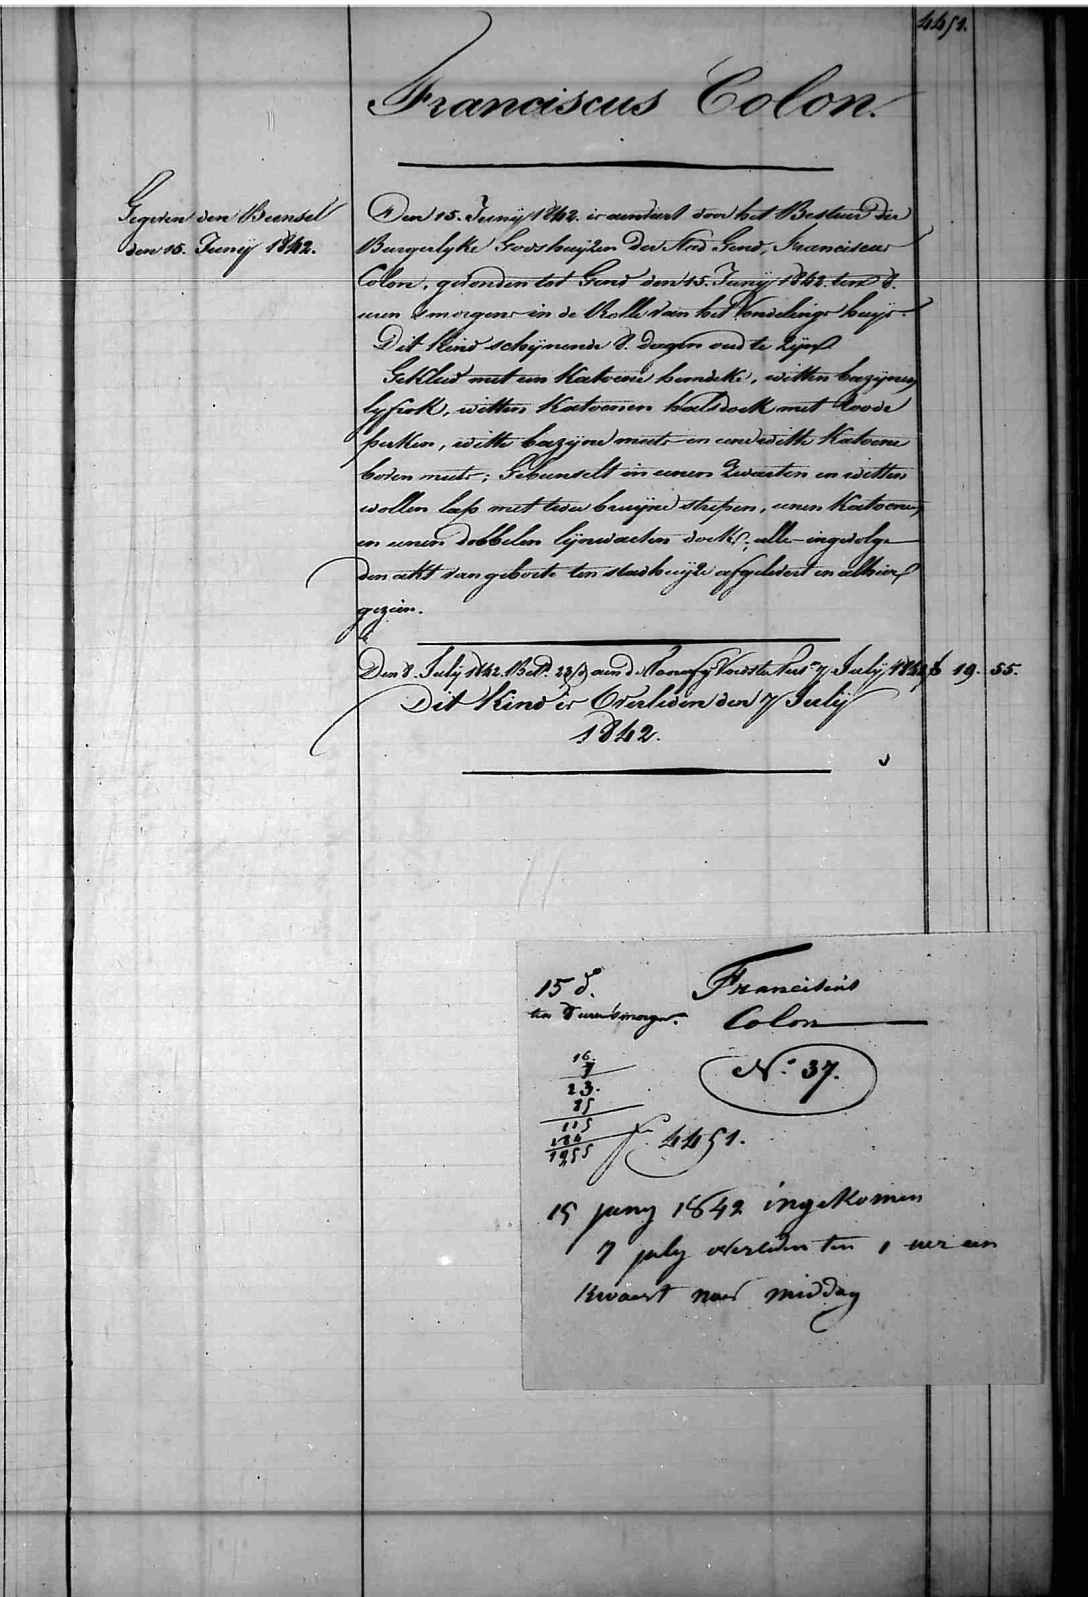 4451.
Franciscus Colon.
Gegeven den Bunsel
den 15. Junij 1842.
Den 15. Junij 1842. is aenveert door het Bestuer der
Burgerlyke Godshuijzen der Stad Gend, Franciscus
Colon, gevonden tot Gend den 15. Junij 1842. ten 8.
uren smorgens in de Rolle van het Vondelings huijs.
Dit kind schijnende 8. dagen oud te zijn
Gekleed met een katoene hemdeke, witten bazijnen
lyfrok, witten katoenen halsdoek met roode
perken, witte bazijne muts en eene witte katoene
boven muts; Gebunselt in eenen zwarten en witten
wollen lap met twee bruijne strepen, eenen katoenen
en eenen dobbelen lijnwaeten doek; alles ingevolge
den akt van geboorte ten stadhuijze afgelevert en alhier
gezien.
Den 8. Julij 1842. Bet. 23/d aen d' Voedster 7 Julij 1842 f 19. 55.
Dit Kind is Overleden den 7 Julij
1842.
15 d.
ten 8 uren smorgens.
Franciscus
Colon
No. 37.
16.
7
23.
85
115
184
1955
f. 4451.
15 juny 1842 ingekomen
7 july overleden ten 1 uer een
kwaert naer middag